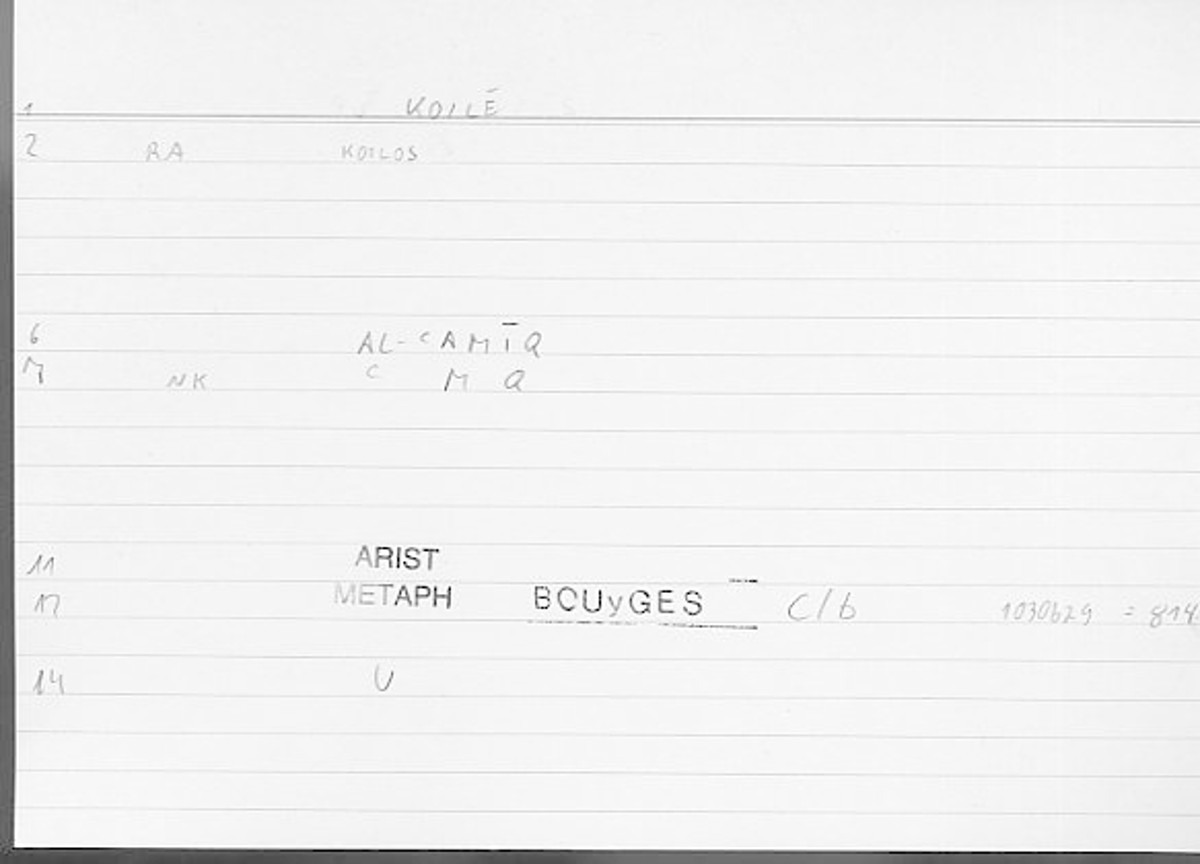 1 KOILĒ
2 RA KOILOS
6 AL-CAMĪQ
7 NK C M Q
11 ARIST
12 METAPH BOUyGES C/b 1030b29 = 818
14 U